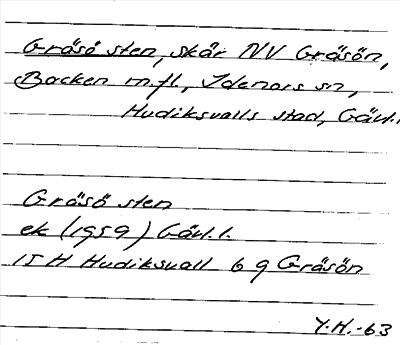 Gräsö sten, skär NV Gräsön,
Backen m.fl., Idenors sn,
Hudiksvalls stad, Gävl.l.
Gräsö sten
ek (1959) Gävl.l.
15H Hudiksvall 6 g Gräsön
Y.H.-63